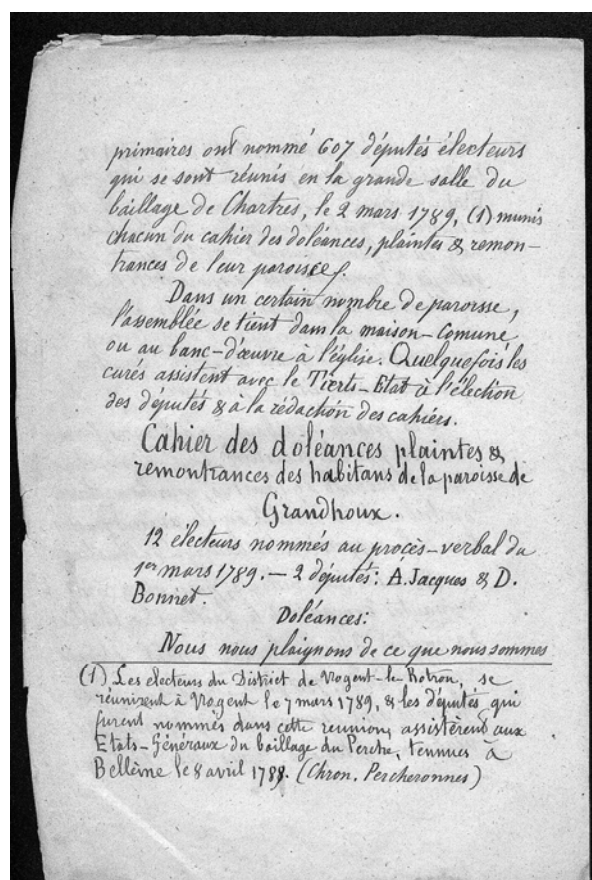 primaires ont nommé 607 députés électeurs
qui se sont réunis en la grande salle du
baillage de Chartres, le 2 mars 1789, (1) munis
chacun du cahier des doléances, plaintes & remon-
trances de leur paroisse.
Dans un certain nombre de paroisse,
l'assemblée se tient dans la maison-comune
ou au banc-d'œuvre à l'église. Quelquefois les
curés assistent avec le Tierts-Etat à l'élection
des députés & à la rédaction des cahiers.
Cahier des doléances plaintes &
remontrances des habitans de la paroisse de
Grandhoux.
12 électeurs nommés au procès-verbal du
1er mars 1789. — 2 députés: A. Jacques & D.
Bonnet.
Doléances:
Nous nous plaignons de ce que nous sommes
(1) Les electeurs du District de Nogent-le-Rotrou, se
réunirent à Nogent le 7 mars 1789, & les députés qui
furent nommés dans cette reunion, assistèrent aux
Etats-Généraux du baillage du Perche, tennues à
Bellème le 8 avril 1789. (Chron. Percheronnes)